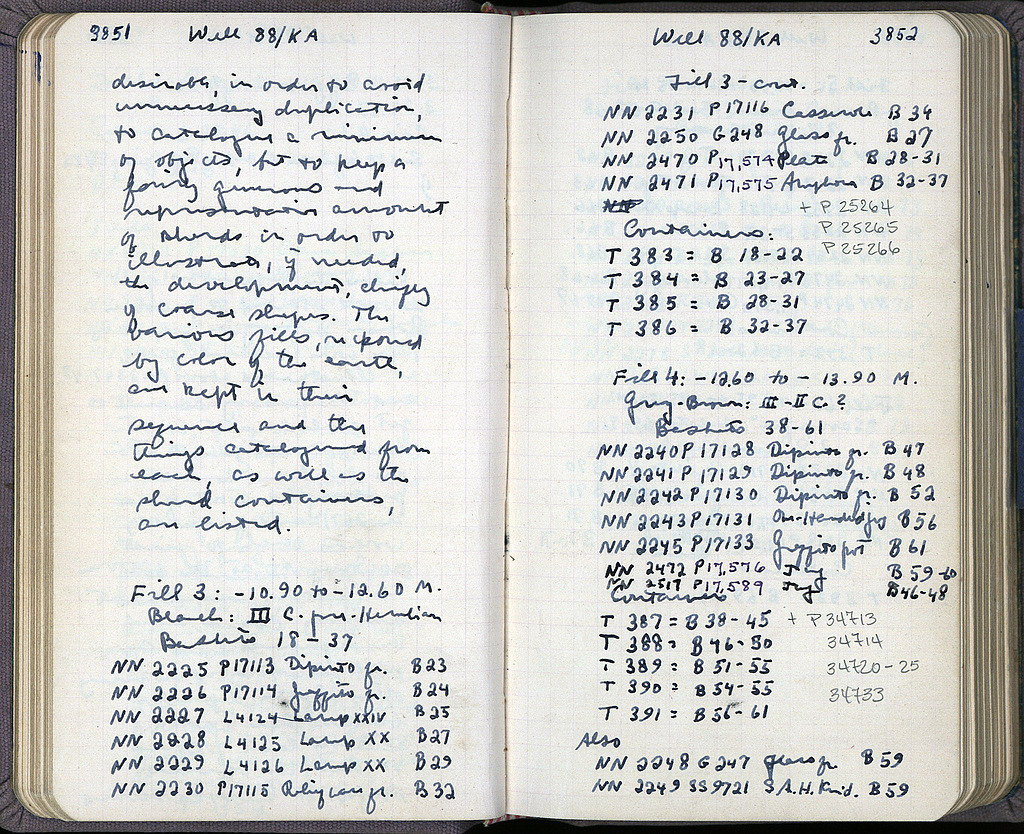 3851 Well 88/KA
desirable, in order to avoid
unnecessary duplication,
to catalogue a minimum
of objects, but to keep a
fairly generous and
representative amount
of sherds in order to
illustrate, if needed,
the development, chiefly
of coarse shapes. The
various fills,
by color of the earth,
are kept in their
sequence and the
things catalogued from
each, as well as the
sherd containers,
are listed.
Fill 3: -10.90 to -12.60 M.
III C. pre-Herulian
Baskets 18-37
NN 2225 P17113 Dipinto fr. B23
NN 2226 P17114 Graffito fr. B24
NN 2227 L4124 Lamp XXIV B25
NN 2228 L4125 Lamp XX B27
NN 2229 L4126 Lamp XX B29
NN 2230 P17115 fr. B32
Well 88/KA 3852
Fill 3 - cont.
NN 2231 P17116 Casserole B34
NN 2250 G248 Glass fr. B27
NN 2470 P17,574 Plate B 28-31
NN 2471 P17,575 Amphora B 32-37
+ P 25264
Containers: P 25265
P 25266
T 383 = B 18-22
T 384 = B 23-27
T 385 = B 28-31
T 386 = B 32-37
Fill 4: -12.60 to -13.90 M.
Grey-Brown: III-II C.?
Baskets 38-61
NN 2240 P17128 Dipinto fr. B47
NN 2241 P17129 Dipinto fr. B48
NN 2242 P17130 Dipinto fr. B52
NN 2243 P17131 One-Handled jug B56
NN 2245 P17133 Graffito pot B61
NN 2472 P17,576 Jug B59-60
NN 2517 P17,589 Jug B46-48
Containers
T 387 = B 38-45 + P 34713
T 388 = B 46-50 34714
T 389 = B 51-55 34720-25
T 390 = B 54-55 34733
T 391 = B 56-61
Also
NN 2248 G247 Glass fr. B59
NN 2249 SS9721 S.A.H. Knid. B59